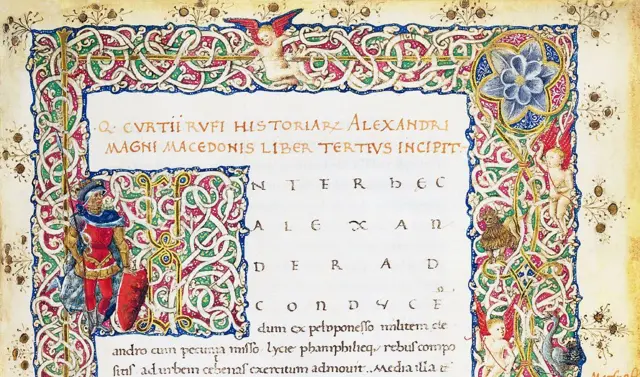 Q. CVRTII RVFI HISTORIARꝜ ALEXANDRI
MAGNI MACEDONIS LIBER TERTIVS INCIPIT·
INTERhEC
ALEXAN
DERAD
CONDVCE
dum ex militem cle
andro cum pecunia misso· lycie rebus compo
sitis ad urbem exercitum admouit. Media illa